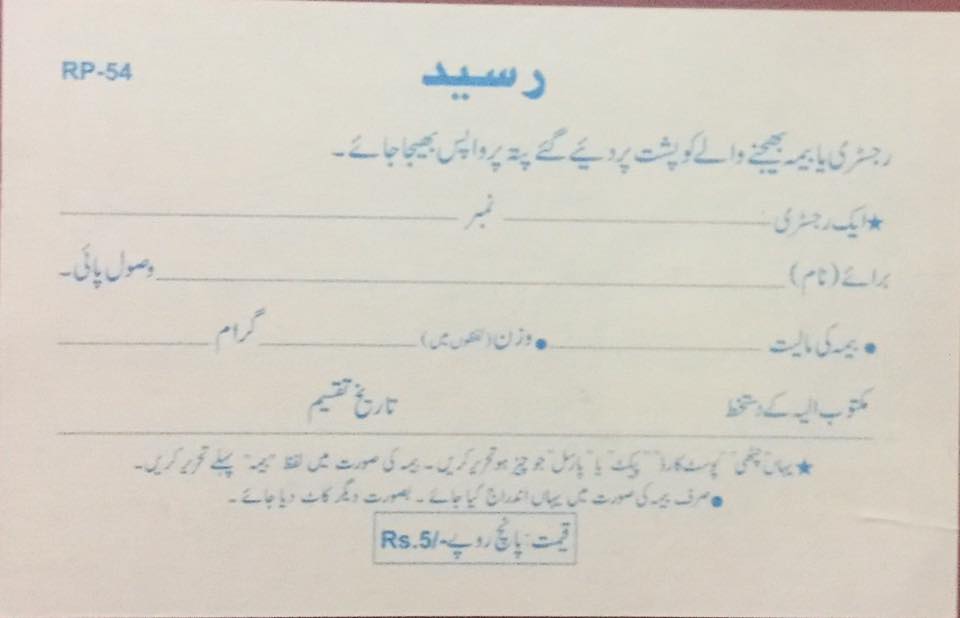 RP-54
رسید
رجسٹری یا بیمہ بھیجنے والے کو پشت پر دئیے گئے پتہ پر واپس بھیجا جائے۔
★ ایک رجسٹری ____ نمبر ____
برائے (نام) ____ وصول پائی۔
● بیمہ کی مالیت ____ ● وزن (لفظوں میں) ____ گرام ____
مکتوب الیہ کے دستخط تاریخ تقسیم
★ یہاں "چٹھی" "پوسٹ کارڈ" "پیکٹ" یا "پارسل" جو چیز ہو تحریر کریں۔ بیمہ کی صورت میں لفظ "بیمہ" پہلے تحریر کریں۔
● صرف بیمہ کی صورت میں یہاں اندراج کیا جائے۔ بصورت دیگر کاٹ دیا جائے۔
قیمت: پانچ روپے Rs.5/-